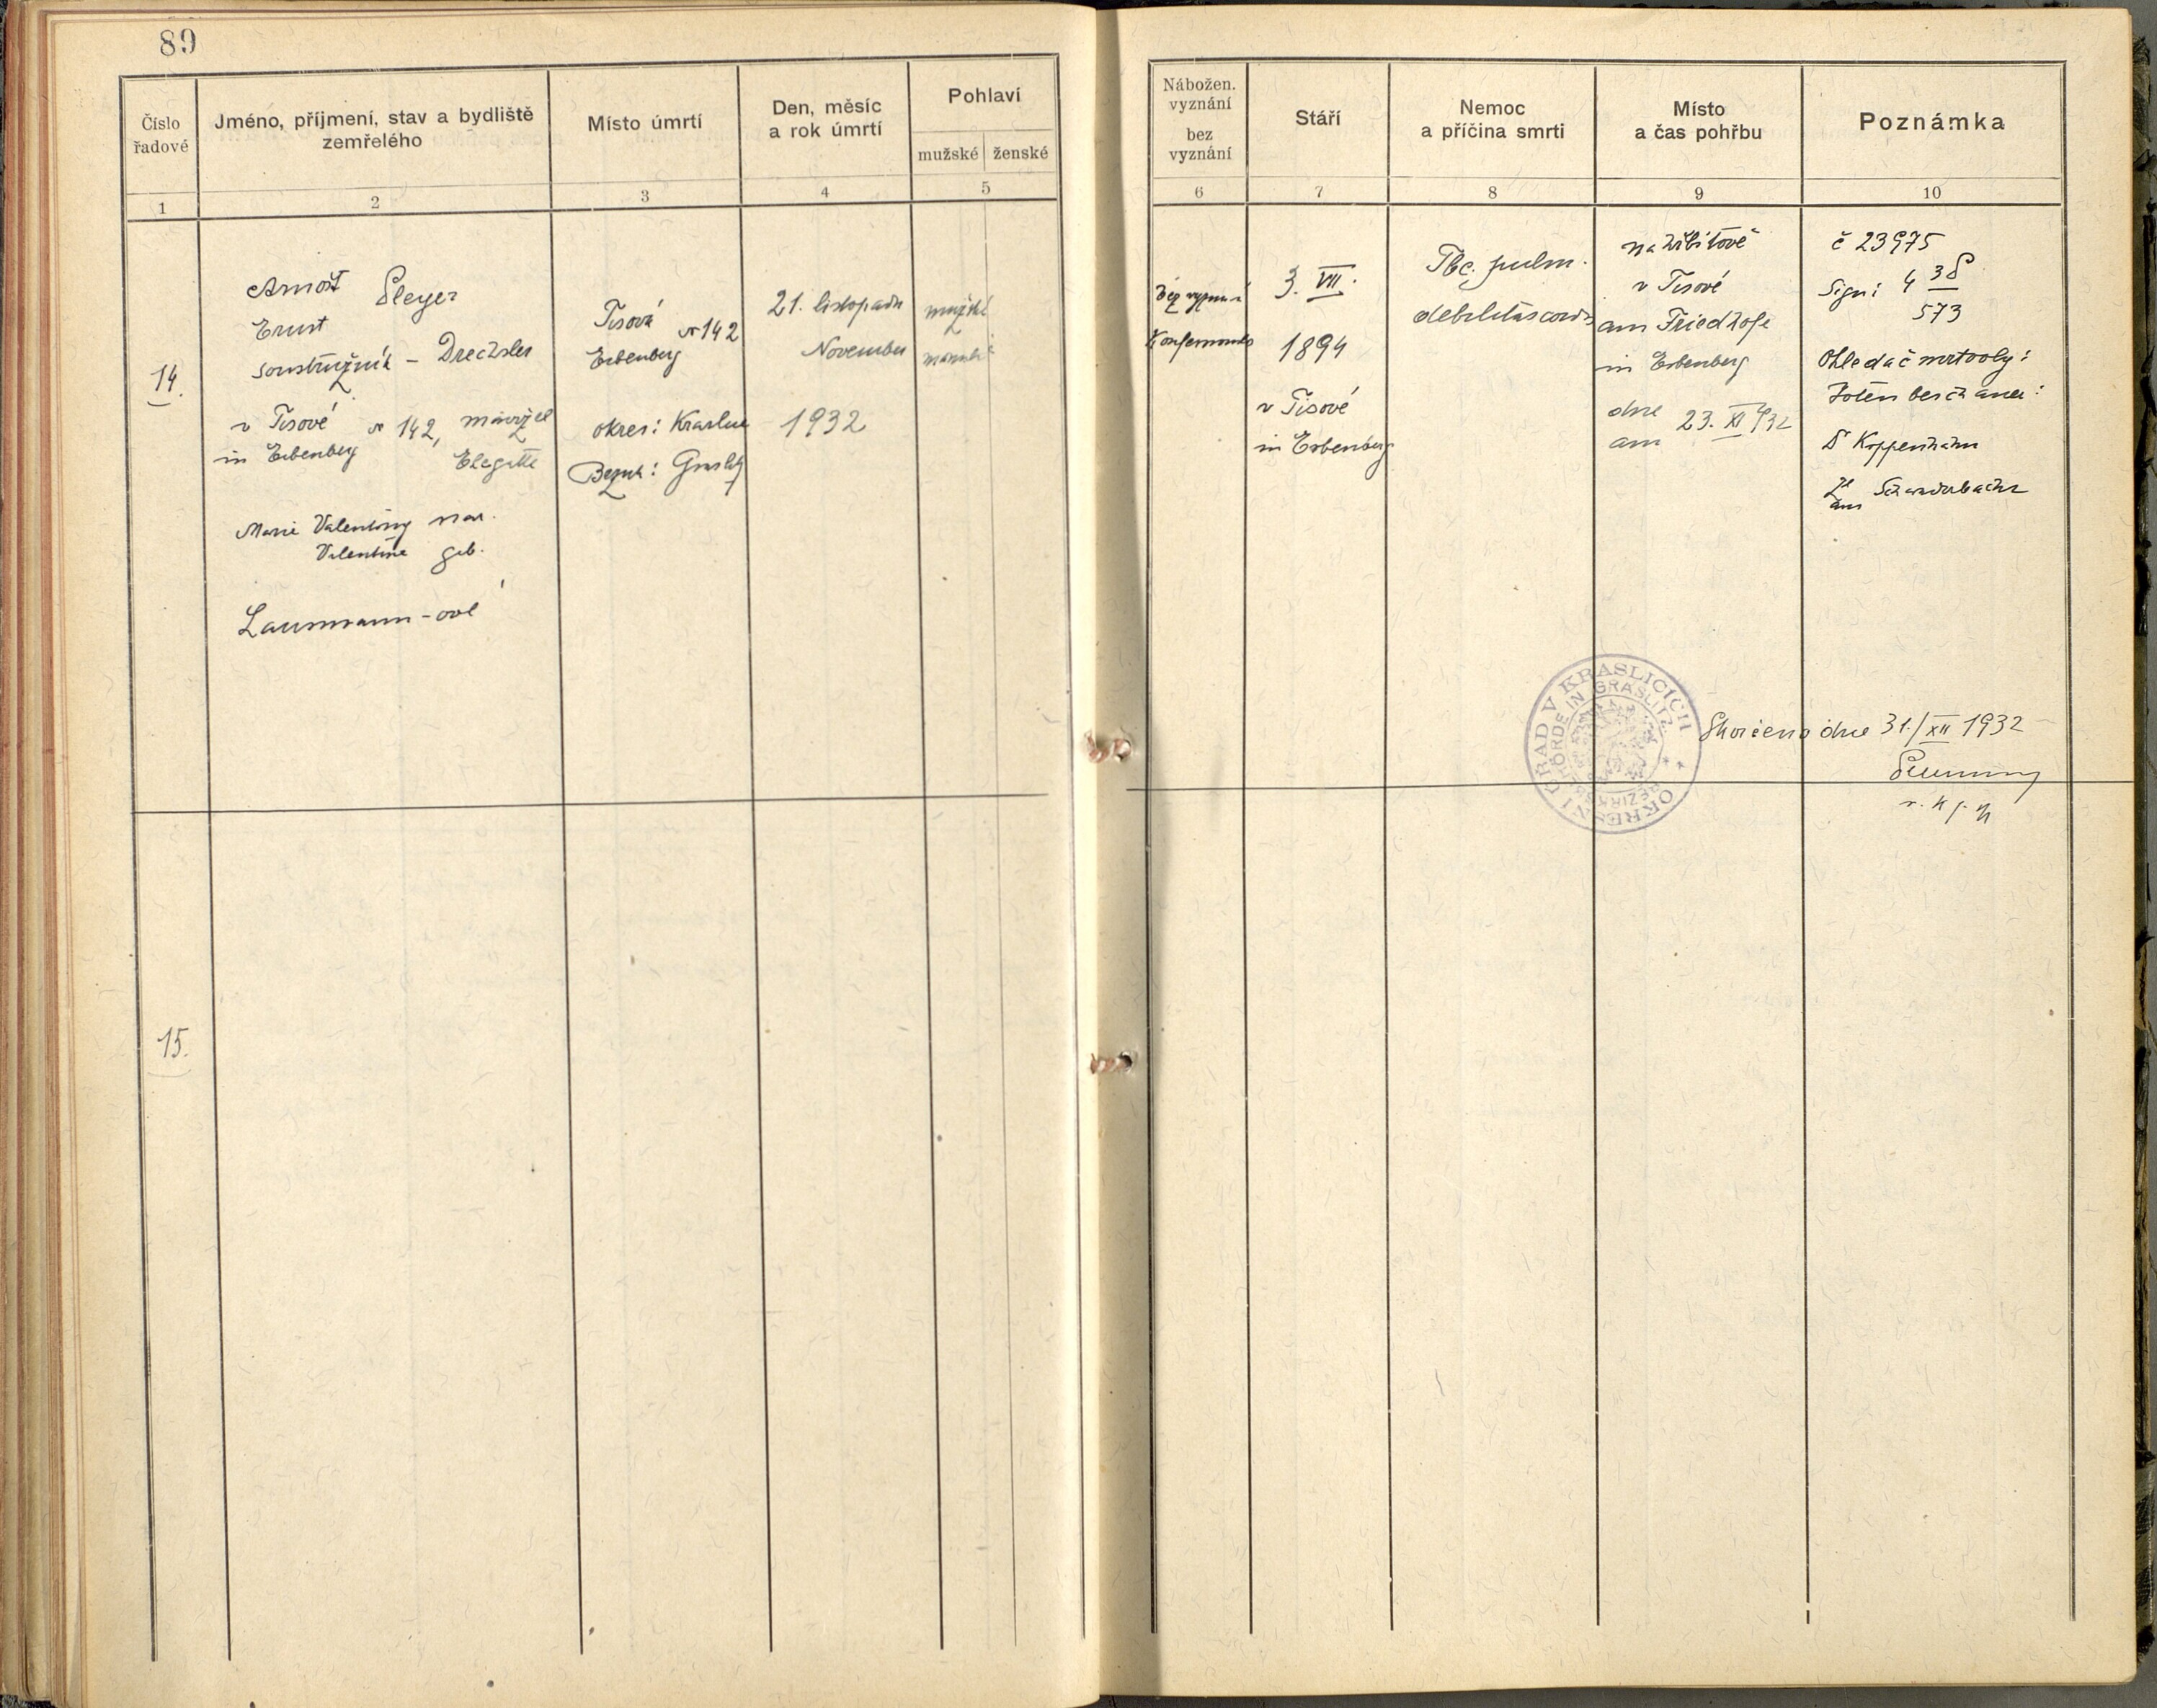 89
Číslo
řadové
Jméno, příjmení, stav a bydliště
zemřelého
Místo úmrtí
Den, měsíc
a rok úmrtí
Pohlaví
mužské ženské
1 2 3 4 5
14.
Arnošt
Ernst
soustružník – Drechsler
v Tisové № 142, manžel
in Eibenberg
Marie Valentiny nar.
Valentine geb.
Laumann-ové
Tisová № 142
Eibenberg
okres: Kraslice
Bezirk: Graslitz
21. listopadu
November
1932
mužské
15.
Nábožen.
vyznání
bez
vyznání
Stáří
Nemoc
a příčina smrti
Místo
a čas pohřbu
Poznámka
6 7 8 9 10
bez vyznání
Konfessionslos
3. VII.
1894
v Tisové
in Eibenberg
Tbc. pulm.
debilitas cordis
na hřbitově
v Tisové
am Friedhofe
in Eibenberg
dne
am 23. XI 932
č 23975
Sign: 4 38
573
Ohledač mrtvoly:
Totenbeschauer:
Dr Koppenhahn
ze
aus Schwaderbach
OKRESNÍ ÚŘAD V KRASLICÍCH
BEZIRKSBEHÖRDE IN GRASLITZ
Skončeno dne 31./XII 1932